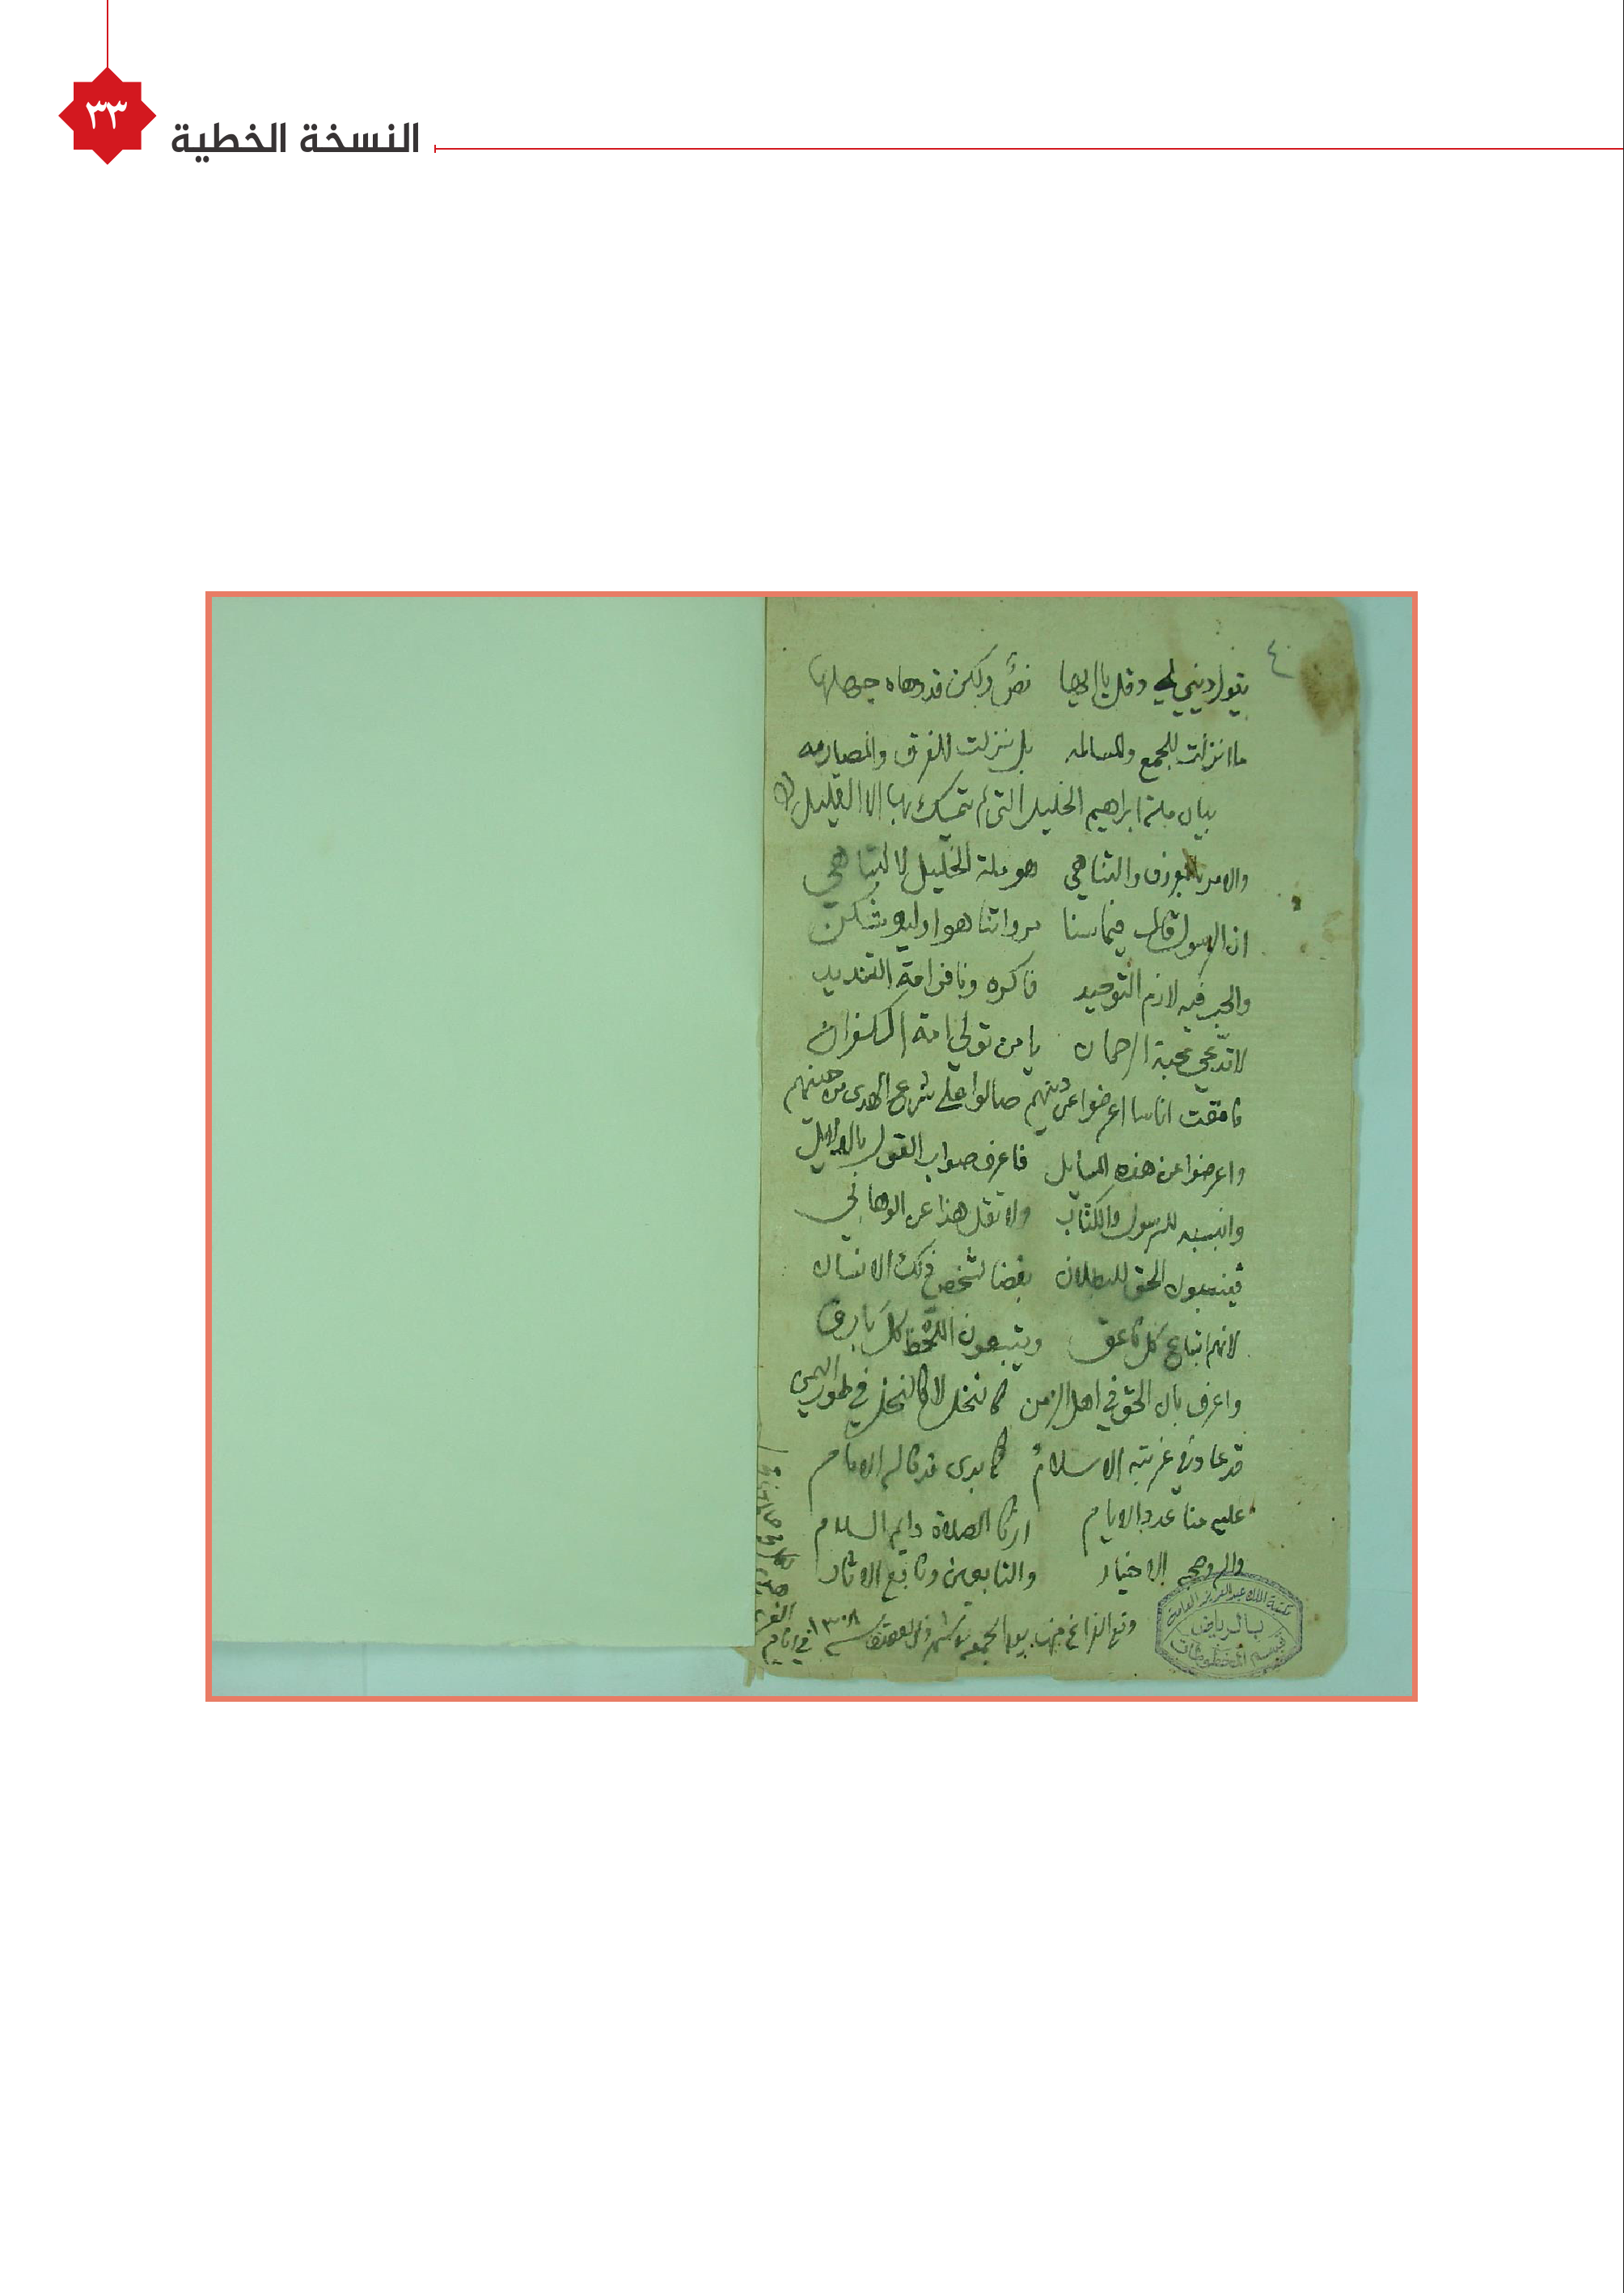 ٣٣
النسخة الخطية
٤٠
يقول ديني لي وقل يا ايها نص ولكن قد دهاه جهلها
ما انزلت للجمع والمسالمه بل نزلت للفرق والمصارمه
بيان ملة ابراهيم الخليل التي لم يتمسك بها الا القليل
والامر والتناهي هو ملة الخليل لا
ان الرسول قال فيما سنا
والحب فيه لازم التوحيد فاكره ونافر امة التنديد
لا تدعي محبة الرحمان يا من تولى امة الكفران
فامقت اناسا اعرضوا عن دينهم صالوا على شرع الهدى من حينهم
واعرضوا عن هذه المسايل فاعرف صواب القول بالدلايل
وانسبه للرسول والكتاب ولا تقل هذا عن الوهابي
فينسبون الحق للبطلان بغضا لشخص ذلك الانسان
لانهم اتباع كل ناعق ويتبعون اللحظ كل بارق
واعرف بان الحق في اهل الزمن
قد عاد في غربته الاسلام كما بدى قد قاله الامام
عليه منا عدد الايام ازكا الصلاة دايم السلام
والآل وصحبه الاخيار والتابعين وتابع الاثار
وقع الفراغ منها يوم الجمعه سنة ١٣٠٨
مكتبة الملك عبد العزيز العامة
بالرياض
قسم المخطوطات